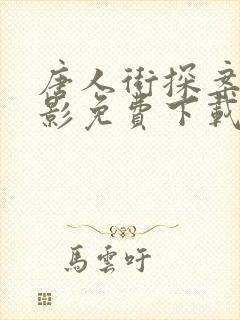 唐人街探案
影免費下載
馬雲吁